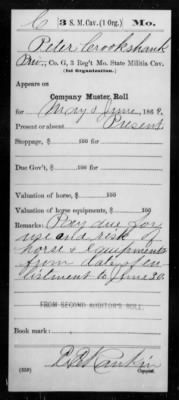 C | 3 S. M. Cav. (1 Org.) | Mo.
Peter Crookshank
Priv., Co. G, 3 Reg't Mo. State Militia Cav.
(1st Organization.)
Appears on
Company Muster Roll
for May & June, 1862.
Present or absent Present
Stoppage, $ 100 for
Due Gov't, $ 100 for
Valuation of horse, $ 100
Valuation of horse equipments, $ 100
Remarks: Pay due for
use and risk of
horse & equipments
from date of en
listment to June 30.
FROM SECOND AUDITOR'S ROLL.
Book mark:
Rankin
(358) Copyist.